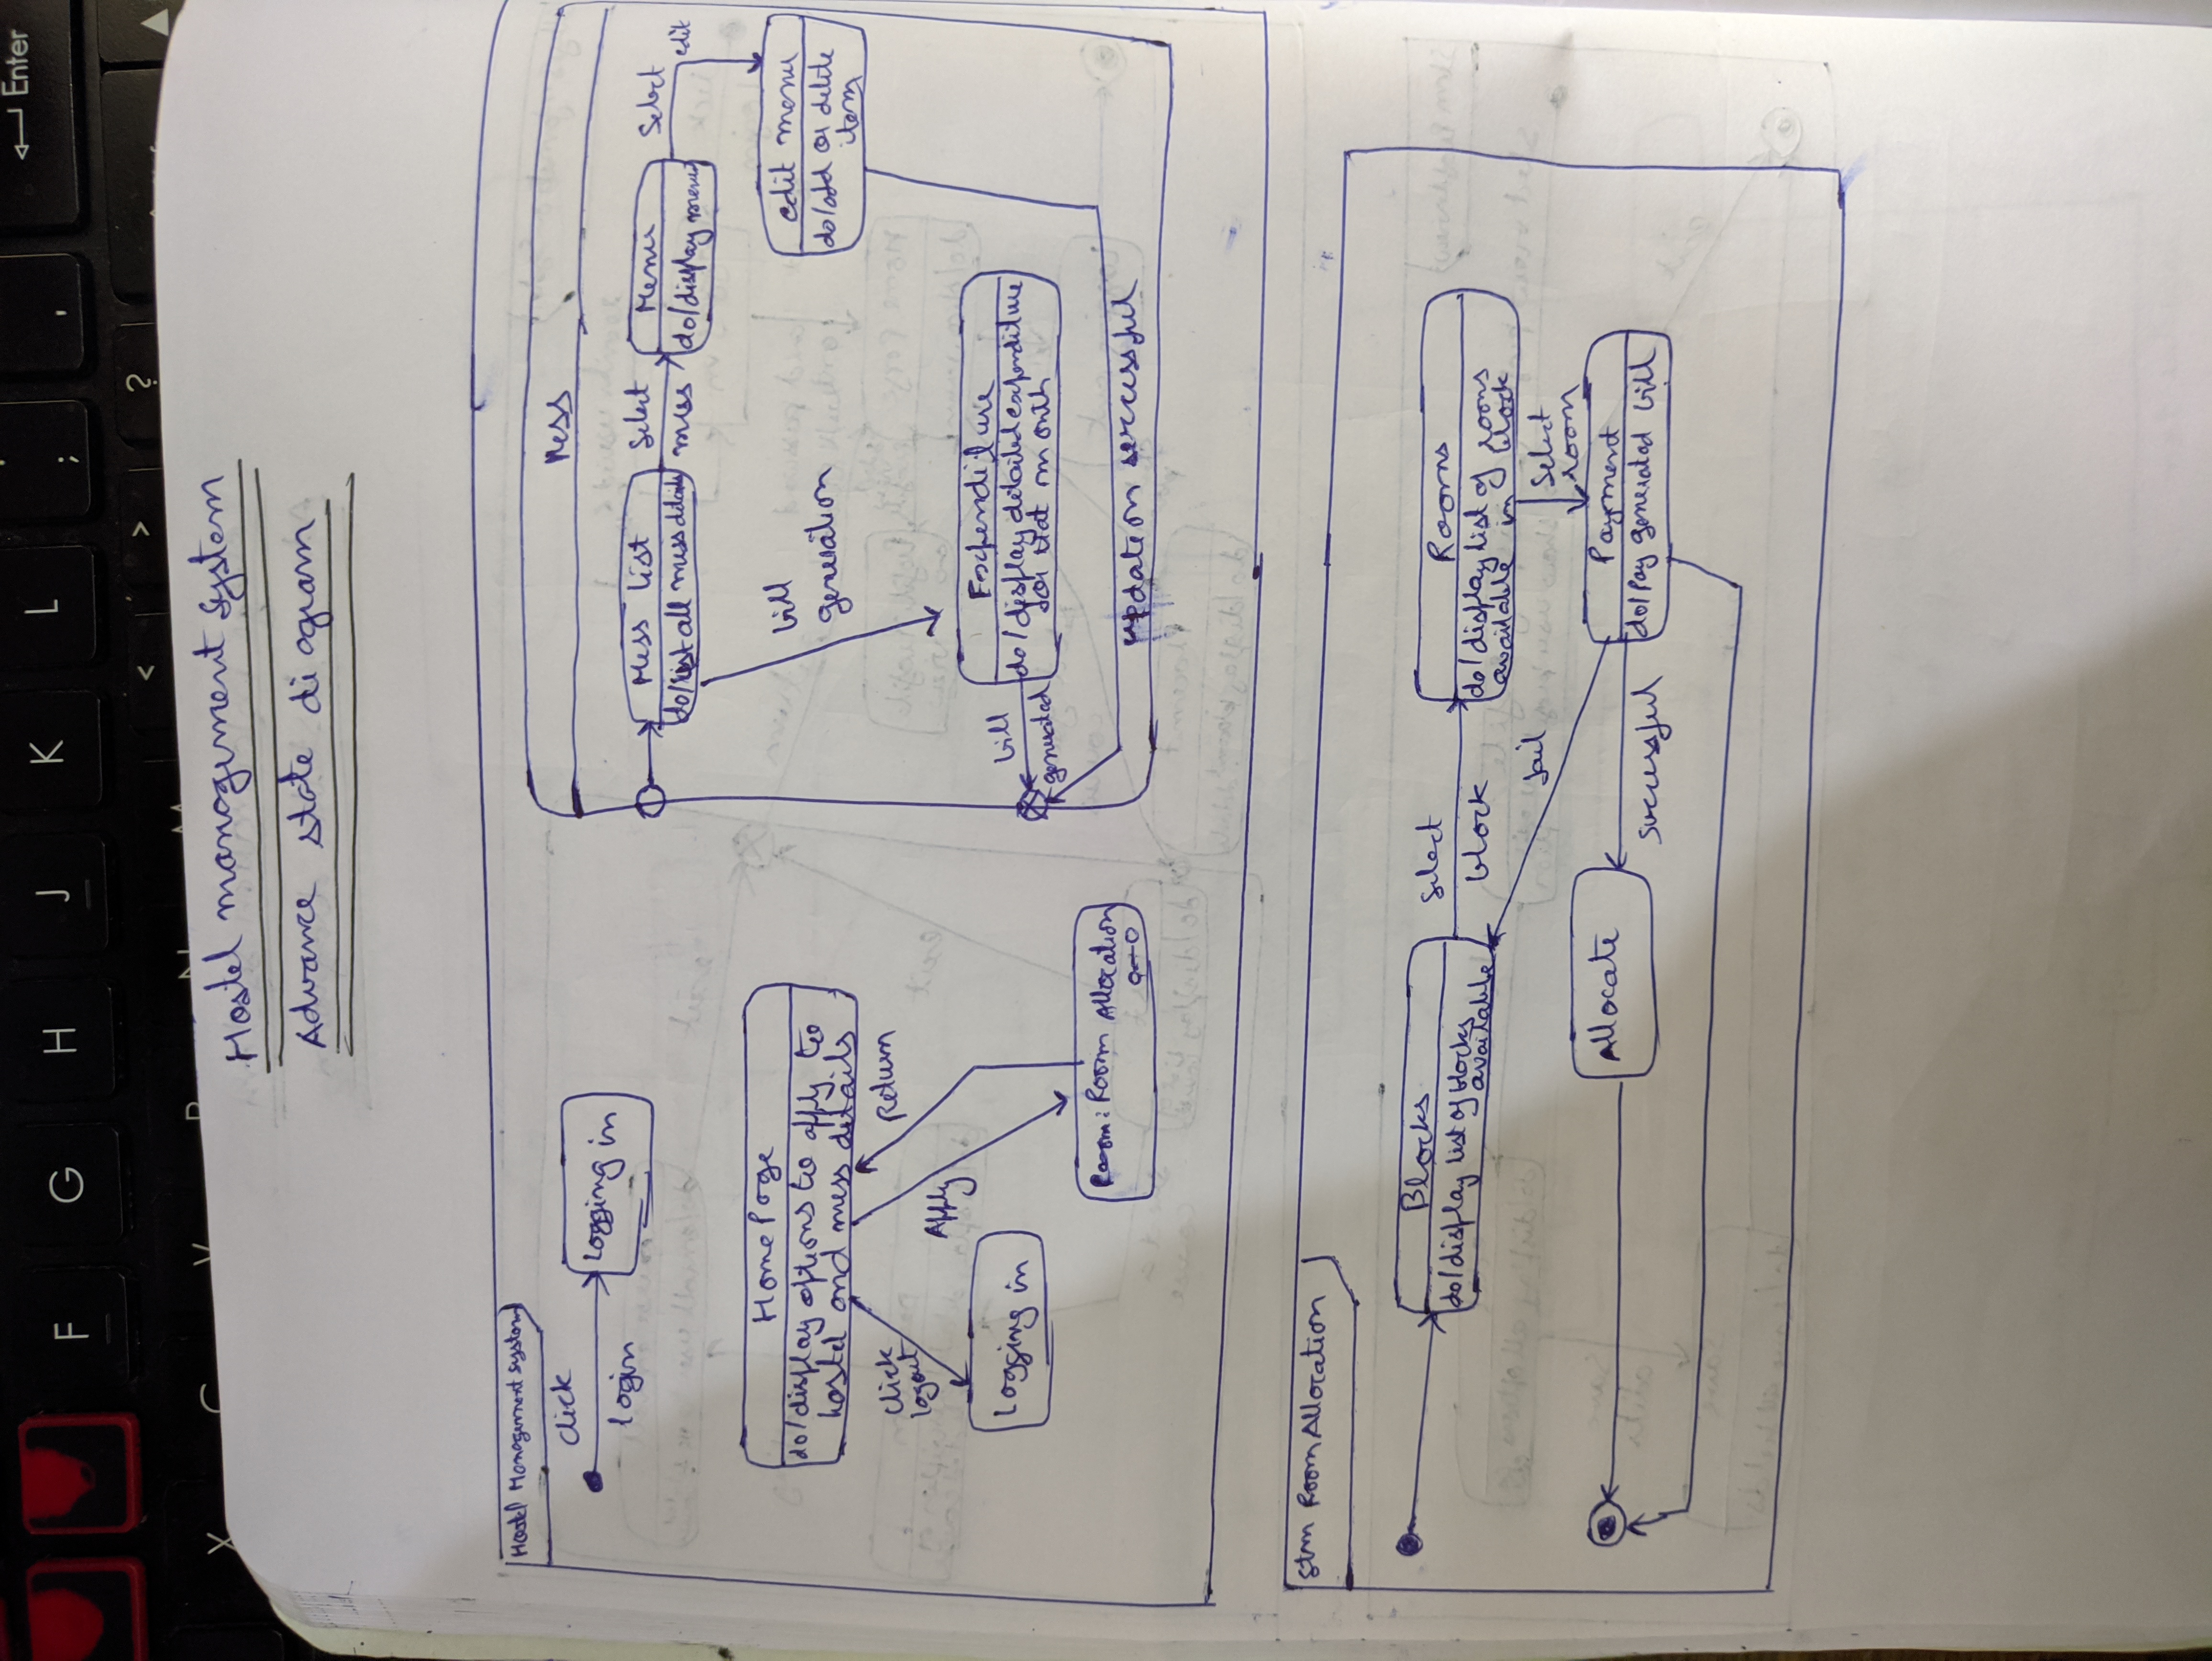 Enter
F G H J K L ; '
< > ?
Hostel management System
Advance state diagram
Hostel Management System
Click
login
Logging in
HomePage
do/display options to apply to
hostel and mess details
Click
logout
Apply
Return
Logging in
Room: Room Allocation
Mess
Mess list
do/list all mess details
Select
mess
Menu
do/display menu
Select
edit
edit menu
do/add or delete
item
bill
generation
Expenditure
do/display detailed expenditure
for that month
bill
generated
updation successful
Stm Room Allocation
Blocks
do/display list of blocks
available
Select
block
Rooms
do/display list of rooms
available in block
Select
room
fail
Payment
do/Pay generated bill
Successful
Allocate